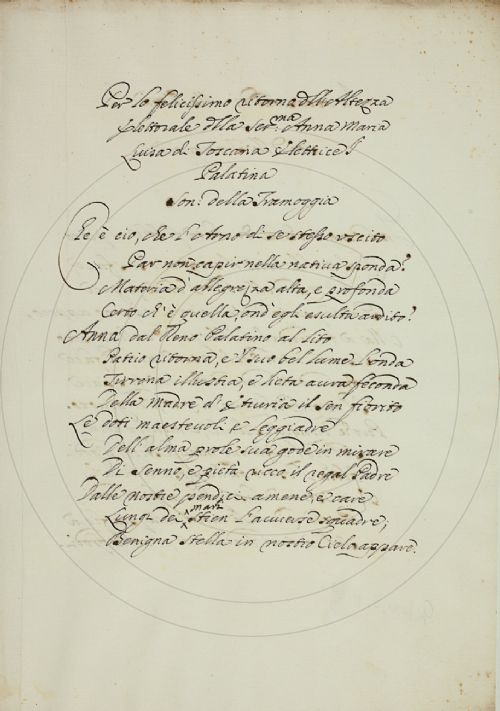 Per lo felicissimo ritorno dell'Altezza
Elettorale della Ser.ma Anna Maria
Luisa di Toscana Elettrice
Palatina
Son. della Tramoggia
Che è ciò, che l'Arno di se stesso uscito
Par non capir nella nativa sponda?
Materia d'allegrezza alta, e profonda
Certo ch'è quella, ond'egli esulta ardito?
Anna dal Reno Palatino al lito
Patrio ritorna, e 'l suo bel lume l'onda
Tirrena illustra, e lieta aura feconda
Della Madre d'Etruria il sen fiorito
Le doti maestevoli e leggiadre
Dell'alma prole sua gode in mirare
Di senno, e pietà ricco il regal Padre
Dalle nostre pendici amene, e care
Lungi dei marz Stien l'acuerse squadre;
Benigna stella in nostro Cielo appare.